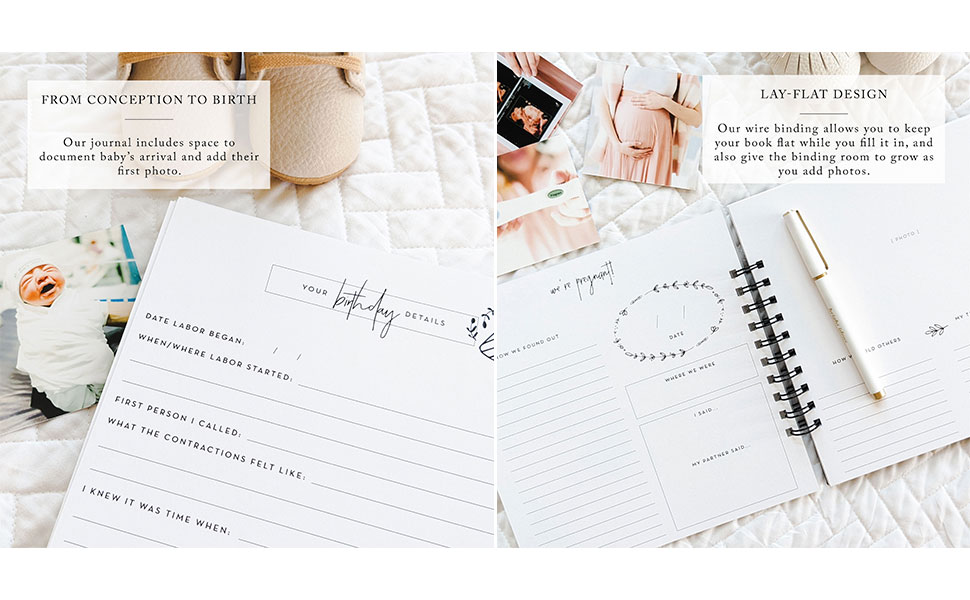 FROM CONCEPTION TO BIRTH
Our journal includes space to
document baby's arrival and add their
first photo.
YOUR birthday DETAILS
DATE LABOR BEGAN: / /
WHEN/WHERE LABOR STARTED:
FIRST PERSON I CALLED:
WHAT THE CONTRACTIONS FELT LIKE:
I KNEW IT WAS TIME WHEN:
LAY-FLAT DESIGN
Our wire binding allows you to keep
your book flat while you fill it in, and
also give the binding room to grow as
you add photos.
we're pregnant!
/ /
DATE
HOW WE FOUND OUT
WHERE WE WERE
I SAID...
MY PARTNER SAID...
[ PHOTO ]
OTHERS